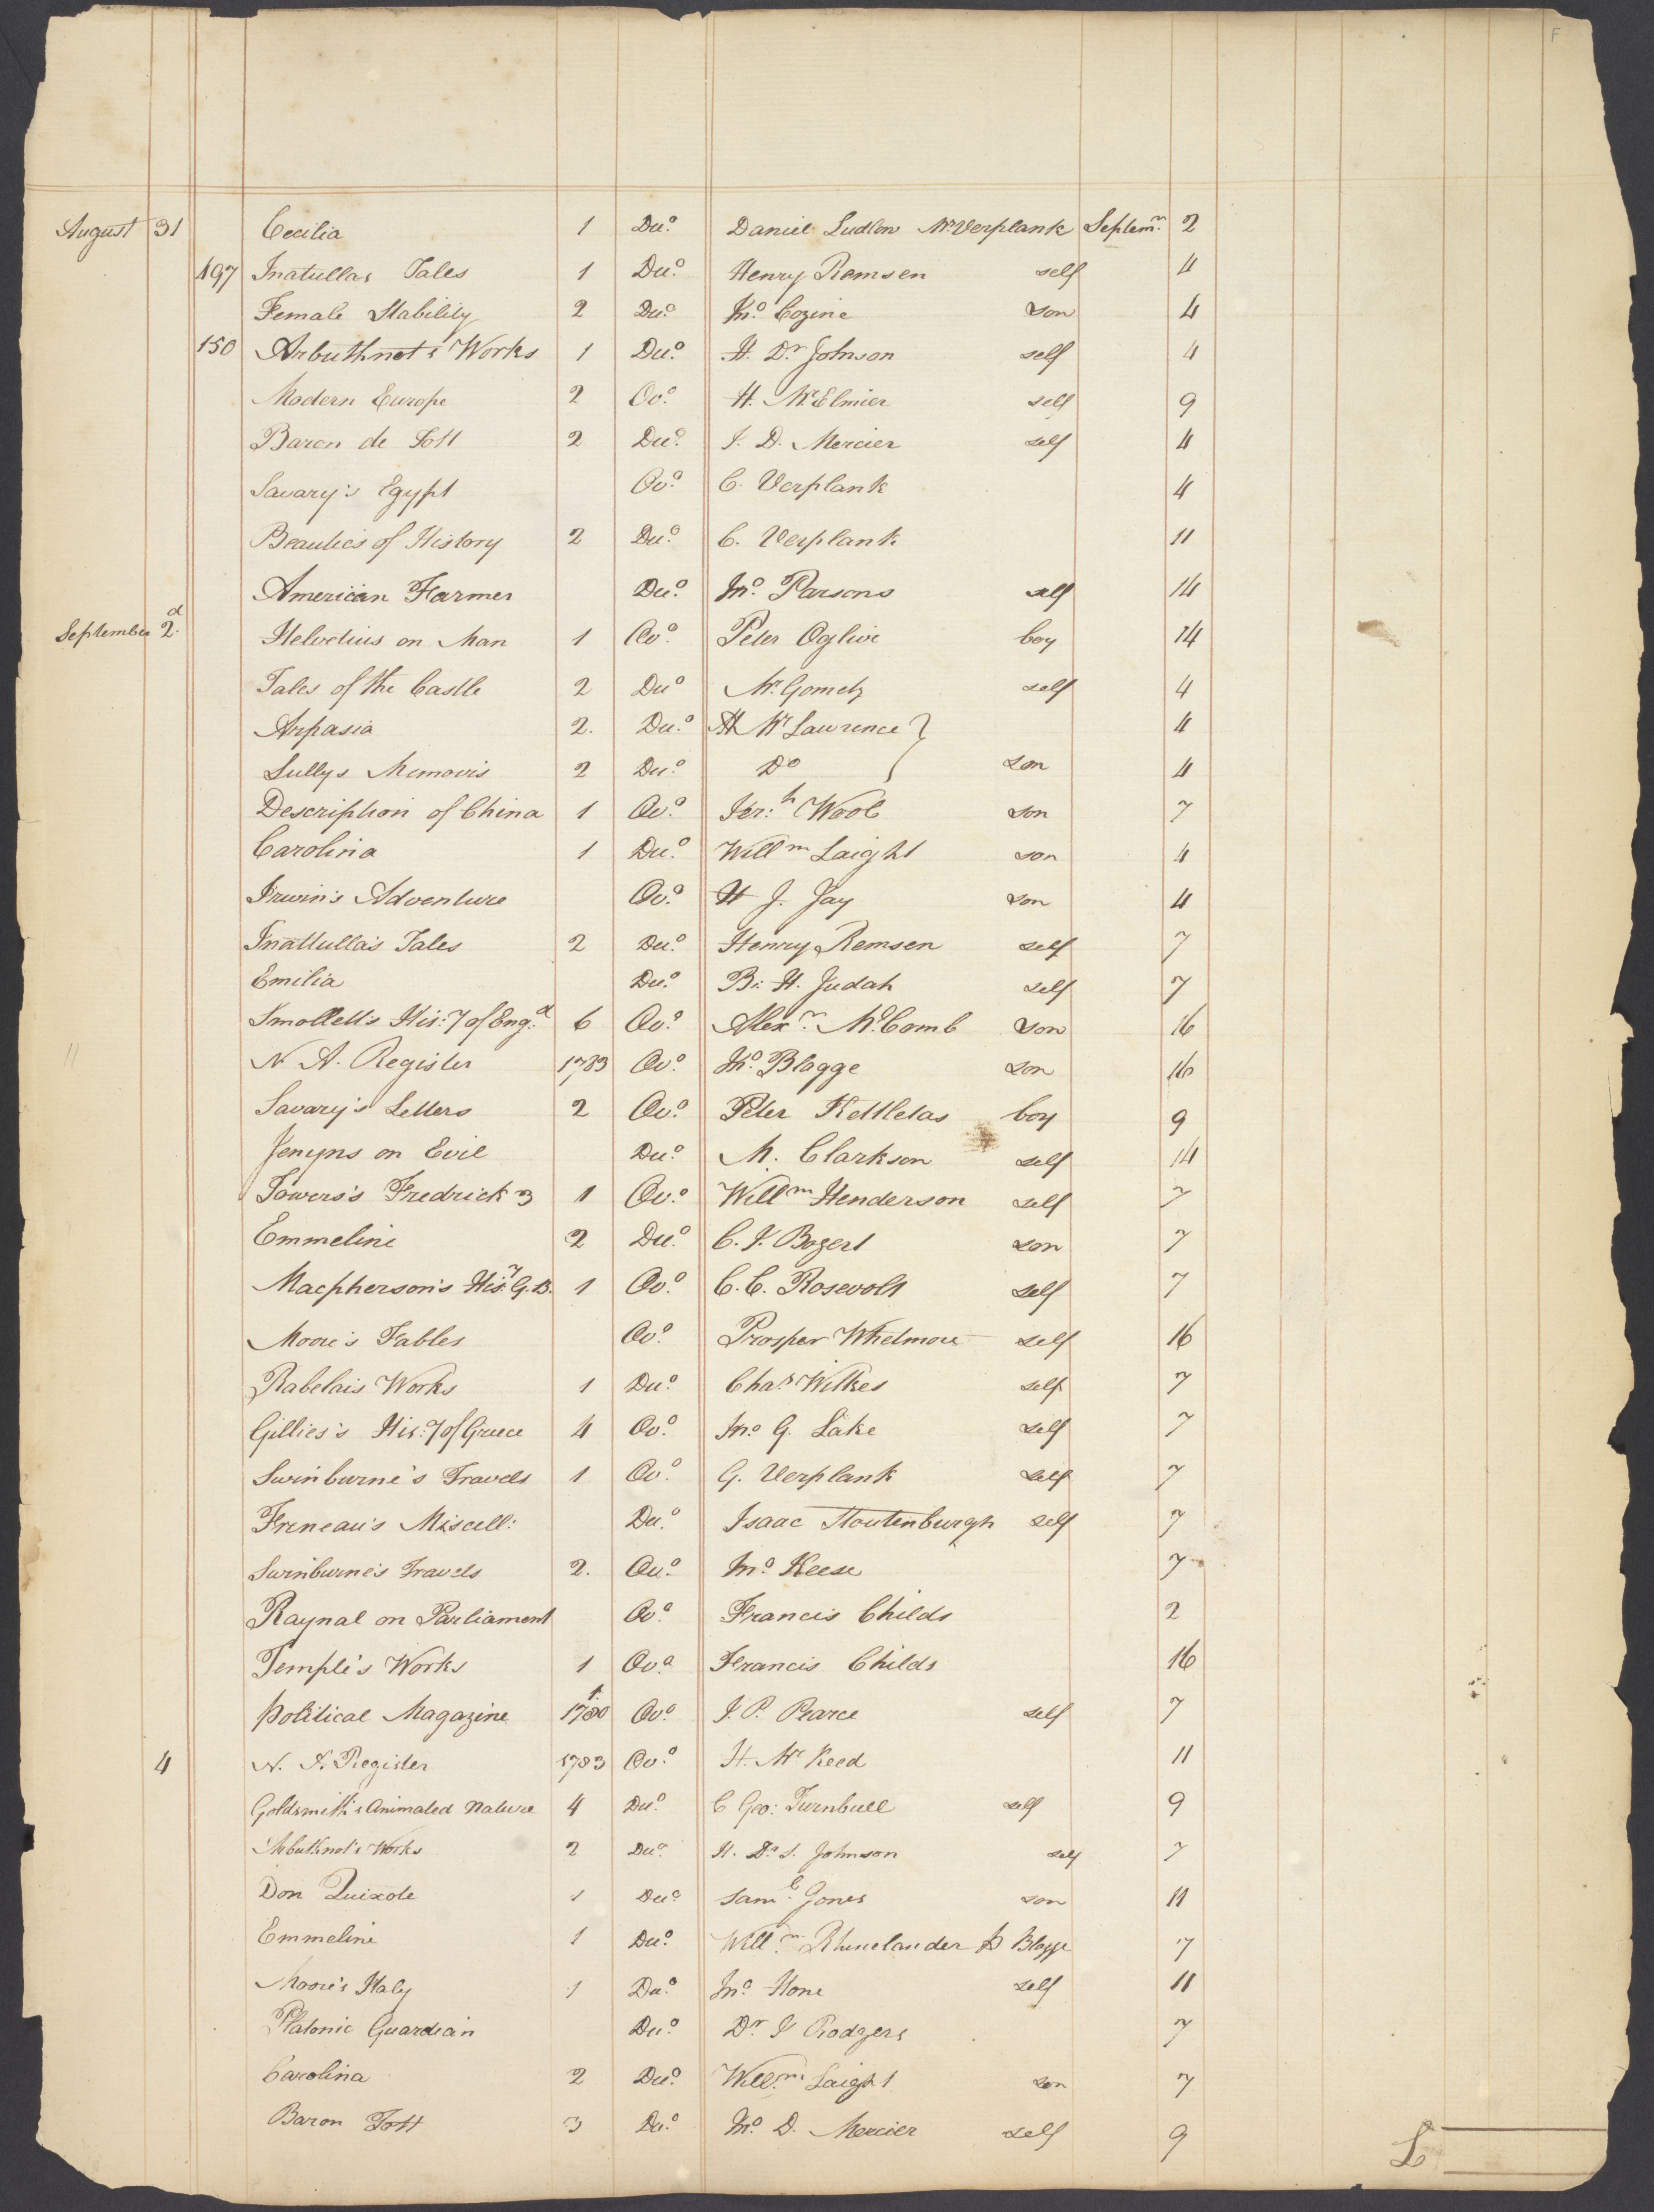 F
August 31 Cecilia 1 Duo. Daniel Ludlow Mr Verplank Septemr. 2
497 Inatullas Tales 1 Duo. Henry Remsen self 4
Female Stability 2 Duo. Jno. Cozine son 4
150 Arbuthnot's Works 1 Duo. H. Dr Johnson self 4
Modern Europe 2 Ovo. H. Mr Elmier self 9
Baron de Tott 2 Duo. J. D. Mercier self 4
Savary's Egypt Ovo. C. Verplank 4
Beauties of History 2 Duo. C. Verplank 11
American Farmer Duo. Jno. Parsons self 14
September 2d. Helvetius on Man 1 Ovo. Peter Oglivie boy 14
Tales of the Castle 2 Duo Mr. Gometz self 4
Aspasia 2. Duo. H Mr Lawrence } 4
Sullys Memoirs 2 Duo. Do son 4
Description of China 1 Ovo. Jer:h Wool son 7
Carolina 1 Duo. Willm Laight son 4
Irwin's Adventure Ovo. H J. Jay son 4
Inattulla's Tales 2 Duo. Henry Remsen self 7
Emilia Duo. B: H. Judah self 7
Smollett's His:y of Eng:d 6 Ovo. Alexr. McComb son 16
N. A. Register 1783 Ovo. Jno. Blagge son 16
Savary's Letters 2 Ovo. Peter Kettletas boy 9
Jenyns on Evil Duo. M. Clarkson self 14
Towers's Fredrick 3 1 Ovo. Willm Henderson self 7
Emmeline 2 Duo. C. J. Bogert son 7
Macpherson's His:y G. B. 1 Ovo. C. C. Rosevolt self 7
Moore's Fables Ovo. Prosper Whetmore self 16
Rabelais Works 1 Duo. Chas Wilkes self 7
Gillies's His:y of Greece 4 Ovo. Jno. G. Lake self 7
Swinburne's Travels 1 Ovo. G. Verplank self 7
Freneau's Miscell: Duo. Isaac Stoutenburgh self 7
Swinburne's Travels 2. Ovo. Jno. Keese 7
Raynal on Parliament Ovo. Francis Childs 2
Temple's Works 1 Ovo. Francis Childs 16
Political Magazine 1780 Ovo. J. P. Pearce self 7
4 N. A. Register 1783 Ovo. H. Mr Reed 11
Goldsmith's Animated Nature 4 Duo. C Geo: Turnbull self 9
Arbuthnot's Works 2 Duo. H. Dr. S. Johnson self 7
Don Quixote 1 Duo. Saml. Jones son 11
Emmeline 1 Duo. Willm. Rhinelander Blagge 7
Moore's Italy 1 Duo. Jno. Hone self 11
Platonic Guardian Duo. Dr J Rodgers 7
Carolina 2 Duo. Willm. Laight son 7
Baron Tott 3 Duo. Jno. D. Mercier self 9